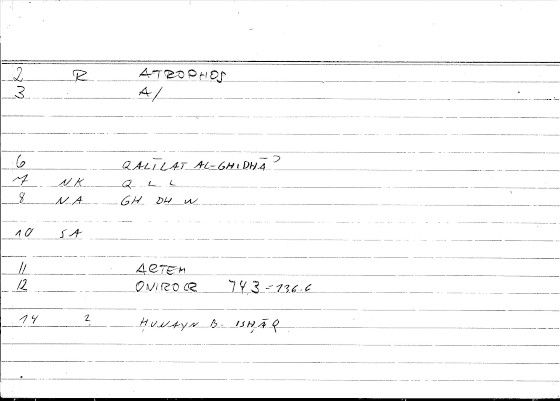 2 R ATROPHOS
3 A/
6 QALĪLAT AL-GHIDHĀʾ
7 NK Q L L
8 NA GH DH W
10 SA
11 ARTEM
12 ONIROCR 743 = 136.6
14 2 ḤUNAYN B. ISḤĀQ